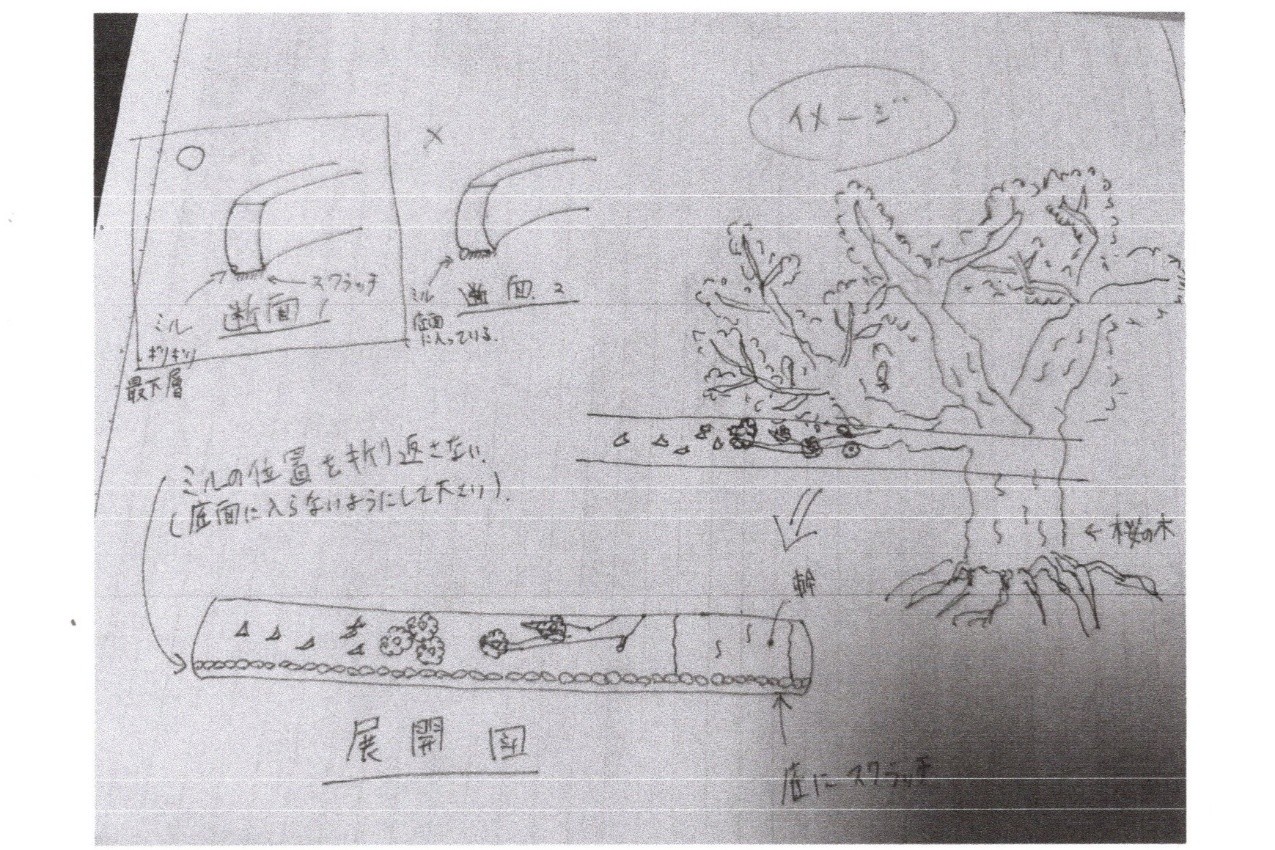 イメージ
○
×
スクラッチ
ミル
ギリギリ
最下層
断面1
ミル
底面
に入っている.
断面.2
ミルの位置を折り返さない.
(底面に入らないようにして下さい).
←桜の木
幹
展開図
底にスクラッチ